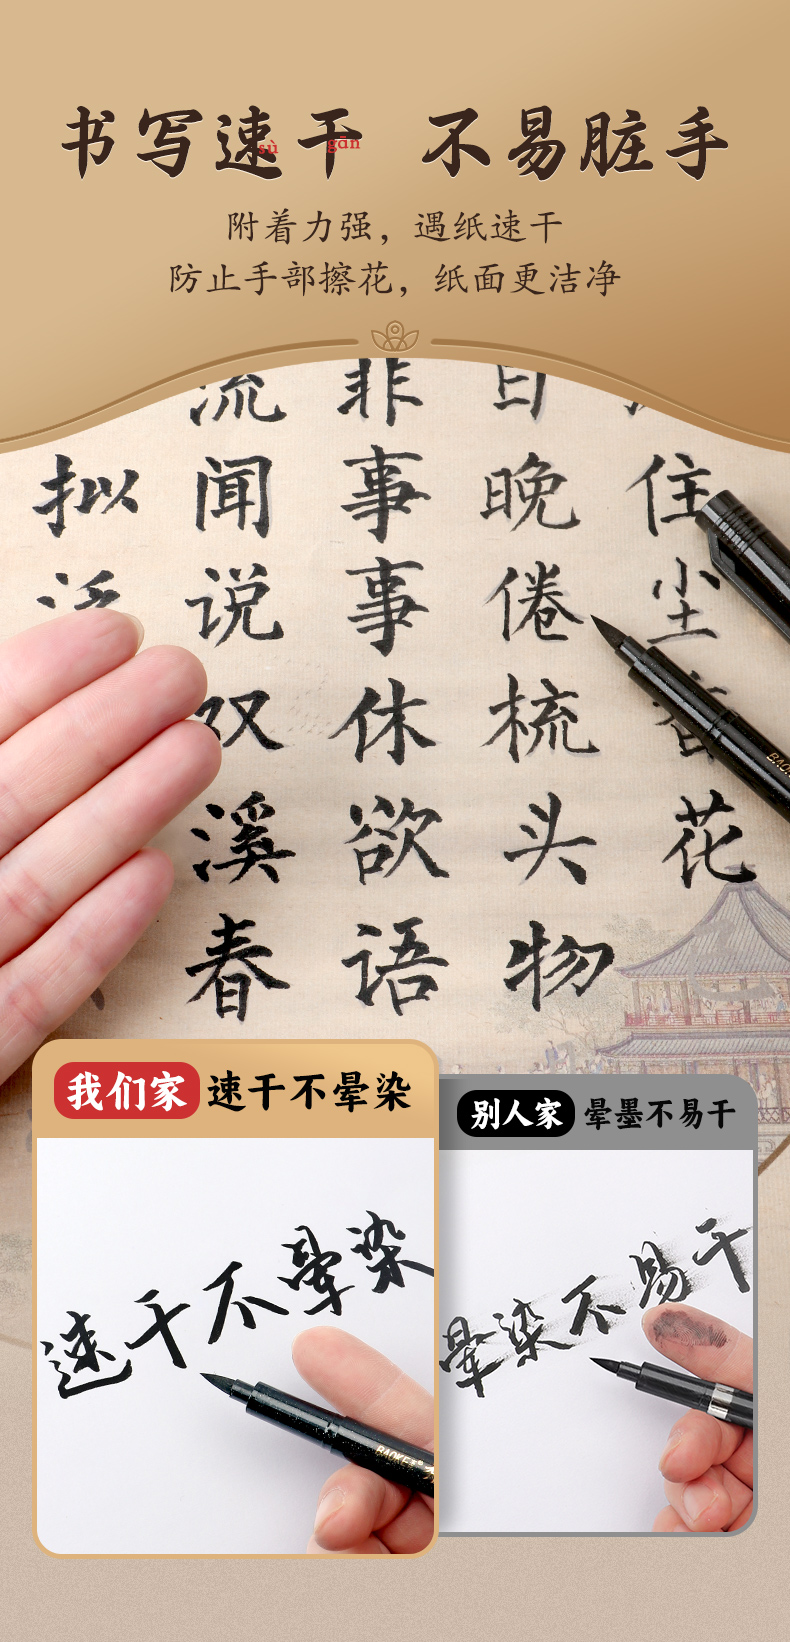 书写速干 不易脏手
sù gān
附着力强，遇纸速干
防止手部擦花，纸面更洁净
住尘香花
日晚倦梳头物
非事事休欲语
流闻说双溪春
拟泛
我们家 速干不晕染
别人家 晕墨不易干
速干不晕染
晕染不易干
BAOKE